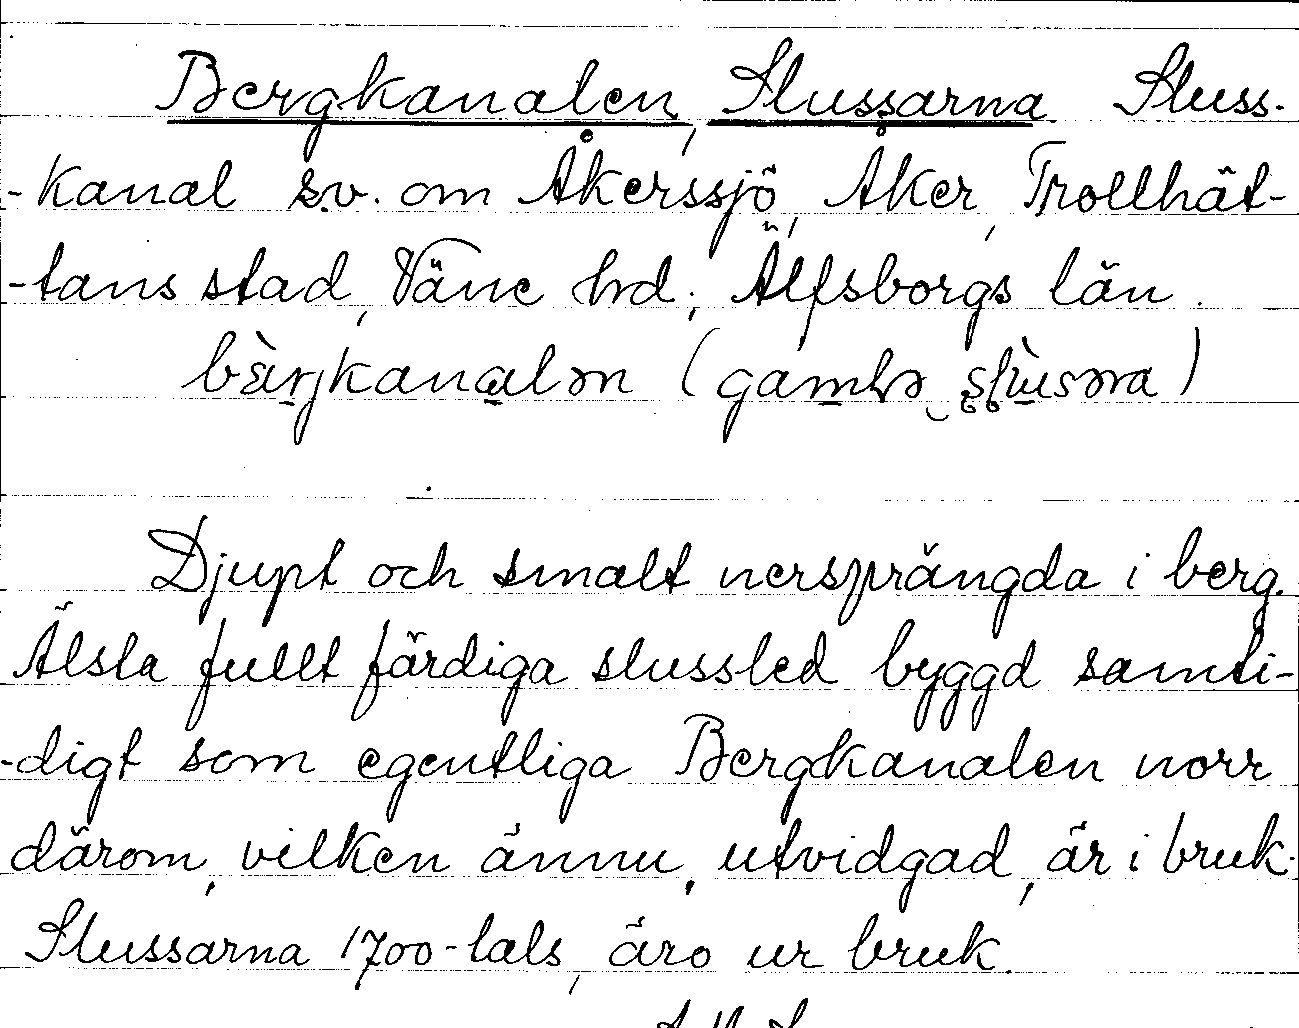 Bergkanalen, Slussarna. Sluss-
-kanal s.v. om Åkerssjö, Åker, Trollhät-
-tans stad, Väne hd., Älfsborgs län.
bàrjkanalən (gamlə slùsəna)
Djupt och smalt nersprängda i berg.
Älsta fullt färdiga slussled byggd samti-
-digt som egentliga Bergkanalen norr
därom, vilken ännu, utvidgad, är i bruk.
Slussarna 1700-tals, äro ur bruk.